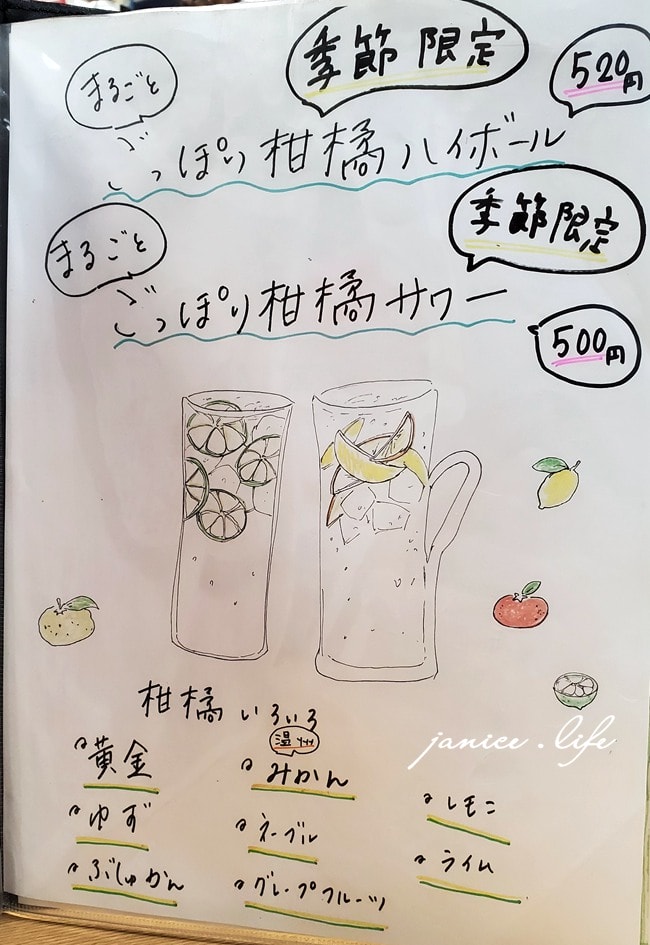 季節限定
まるごと
520円
ごっぽり柑橘ハイボール
季節限定
まるごと
ごっぽり柑橘サワー
500円
柑橘いろいろ
黄金
温州
みかん
レモン
ゆず
ネーブル
ライム
ぶしゅかん
グレープフルーツ
janice.life